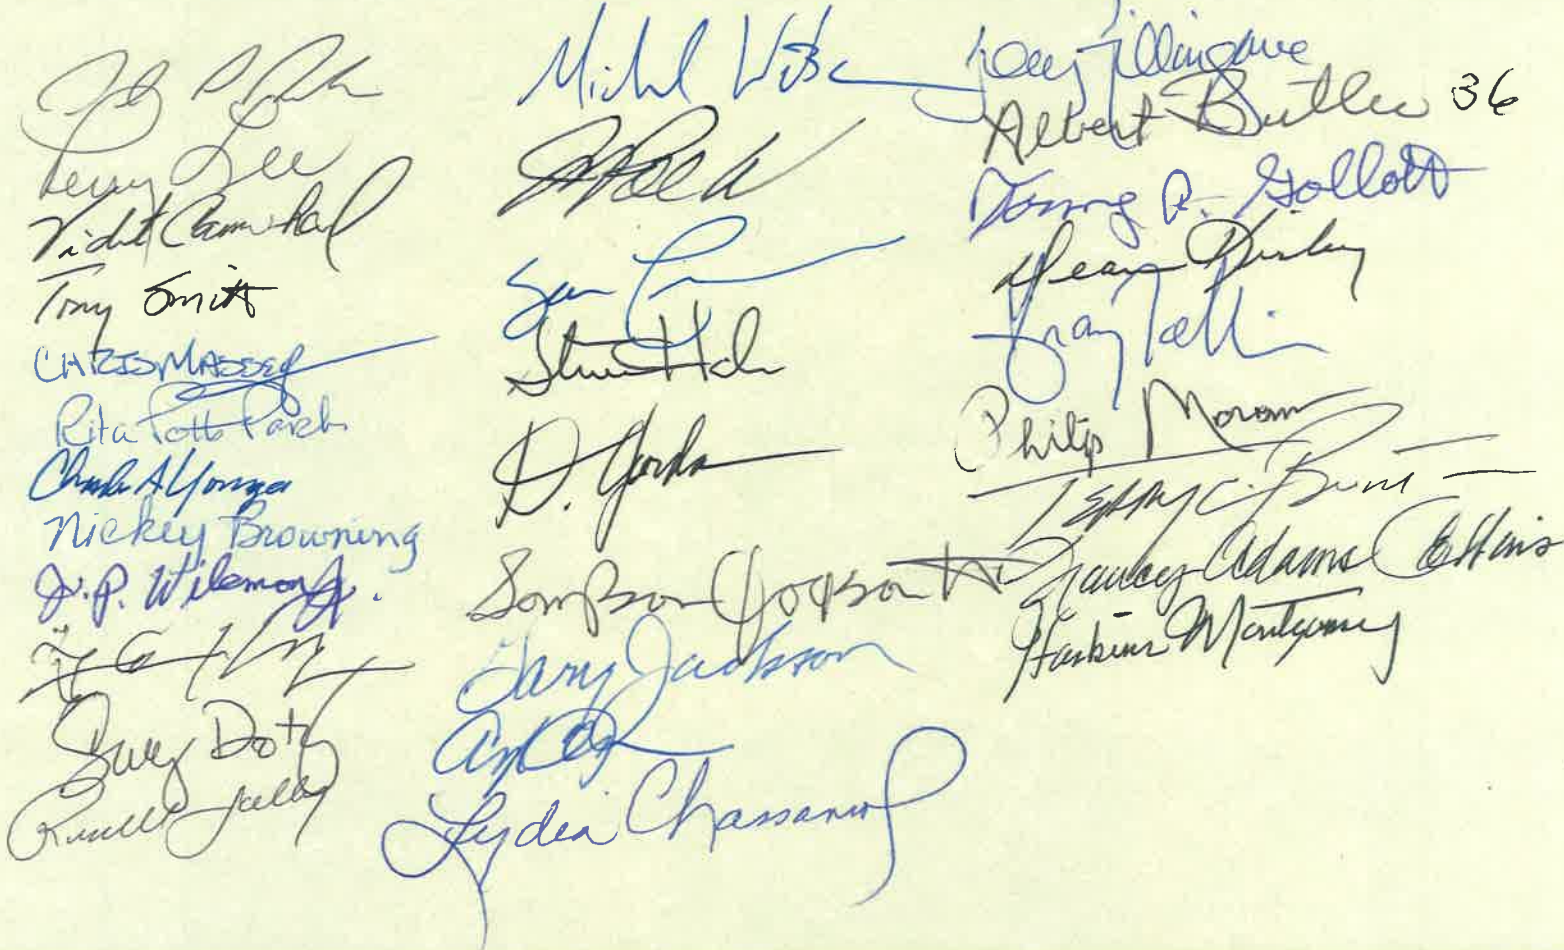 Perry Lee
Videt Carmichael
Tony Smith
CHRIS MASSEY
Rita Potts Parks
Charles A Younger
Nickey Browning
J.P. Wilemon Jr.
Gary Doty
Russell Jolly
Michael Watson
Steve Hale
D. Jordan
Sampson Jackson II
Gary Jackson
Lydia Chassaniol
Joey Fillingane
Albert Butler 36
Tommy A. Gollott
Dean Kirby
Gray Tollison
Philip Moran
Terry C. Burton
Nancy Adams Collins
Haskins Montgomery